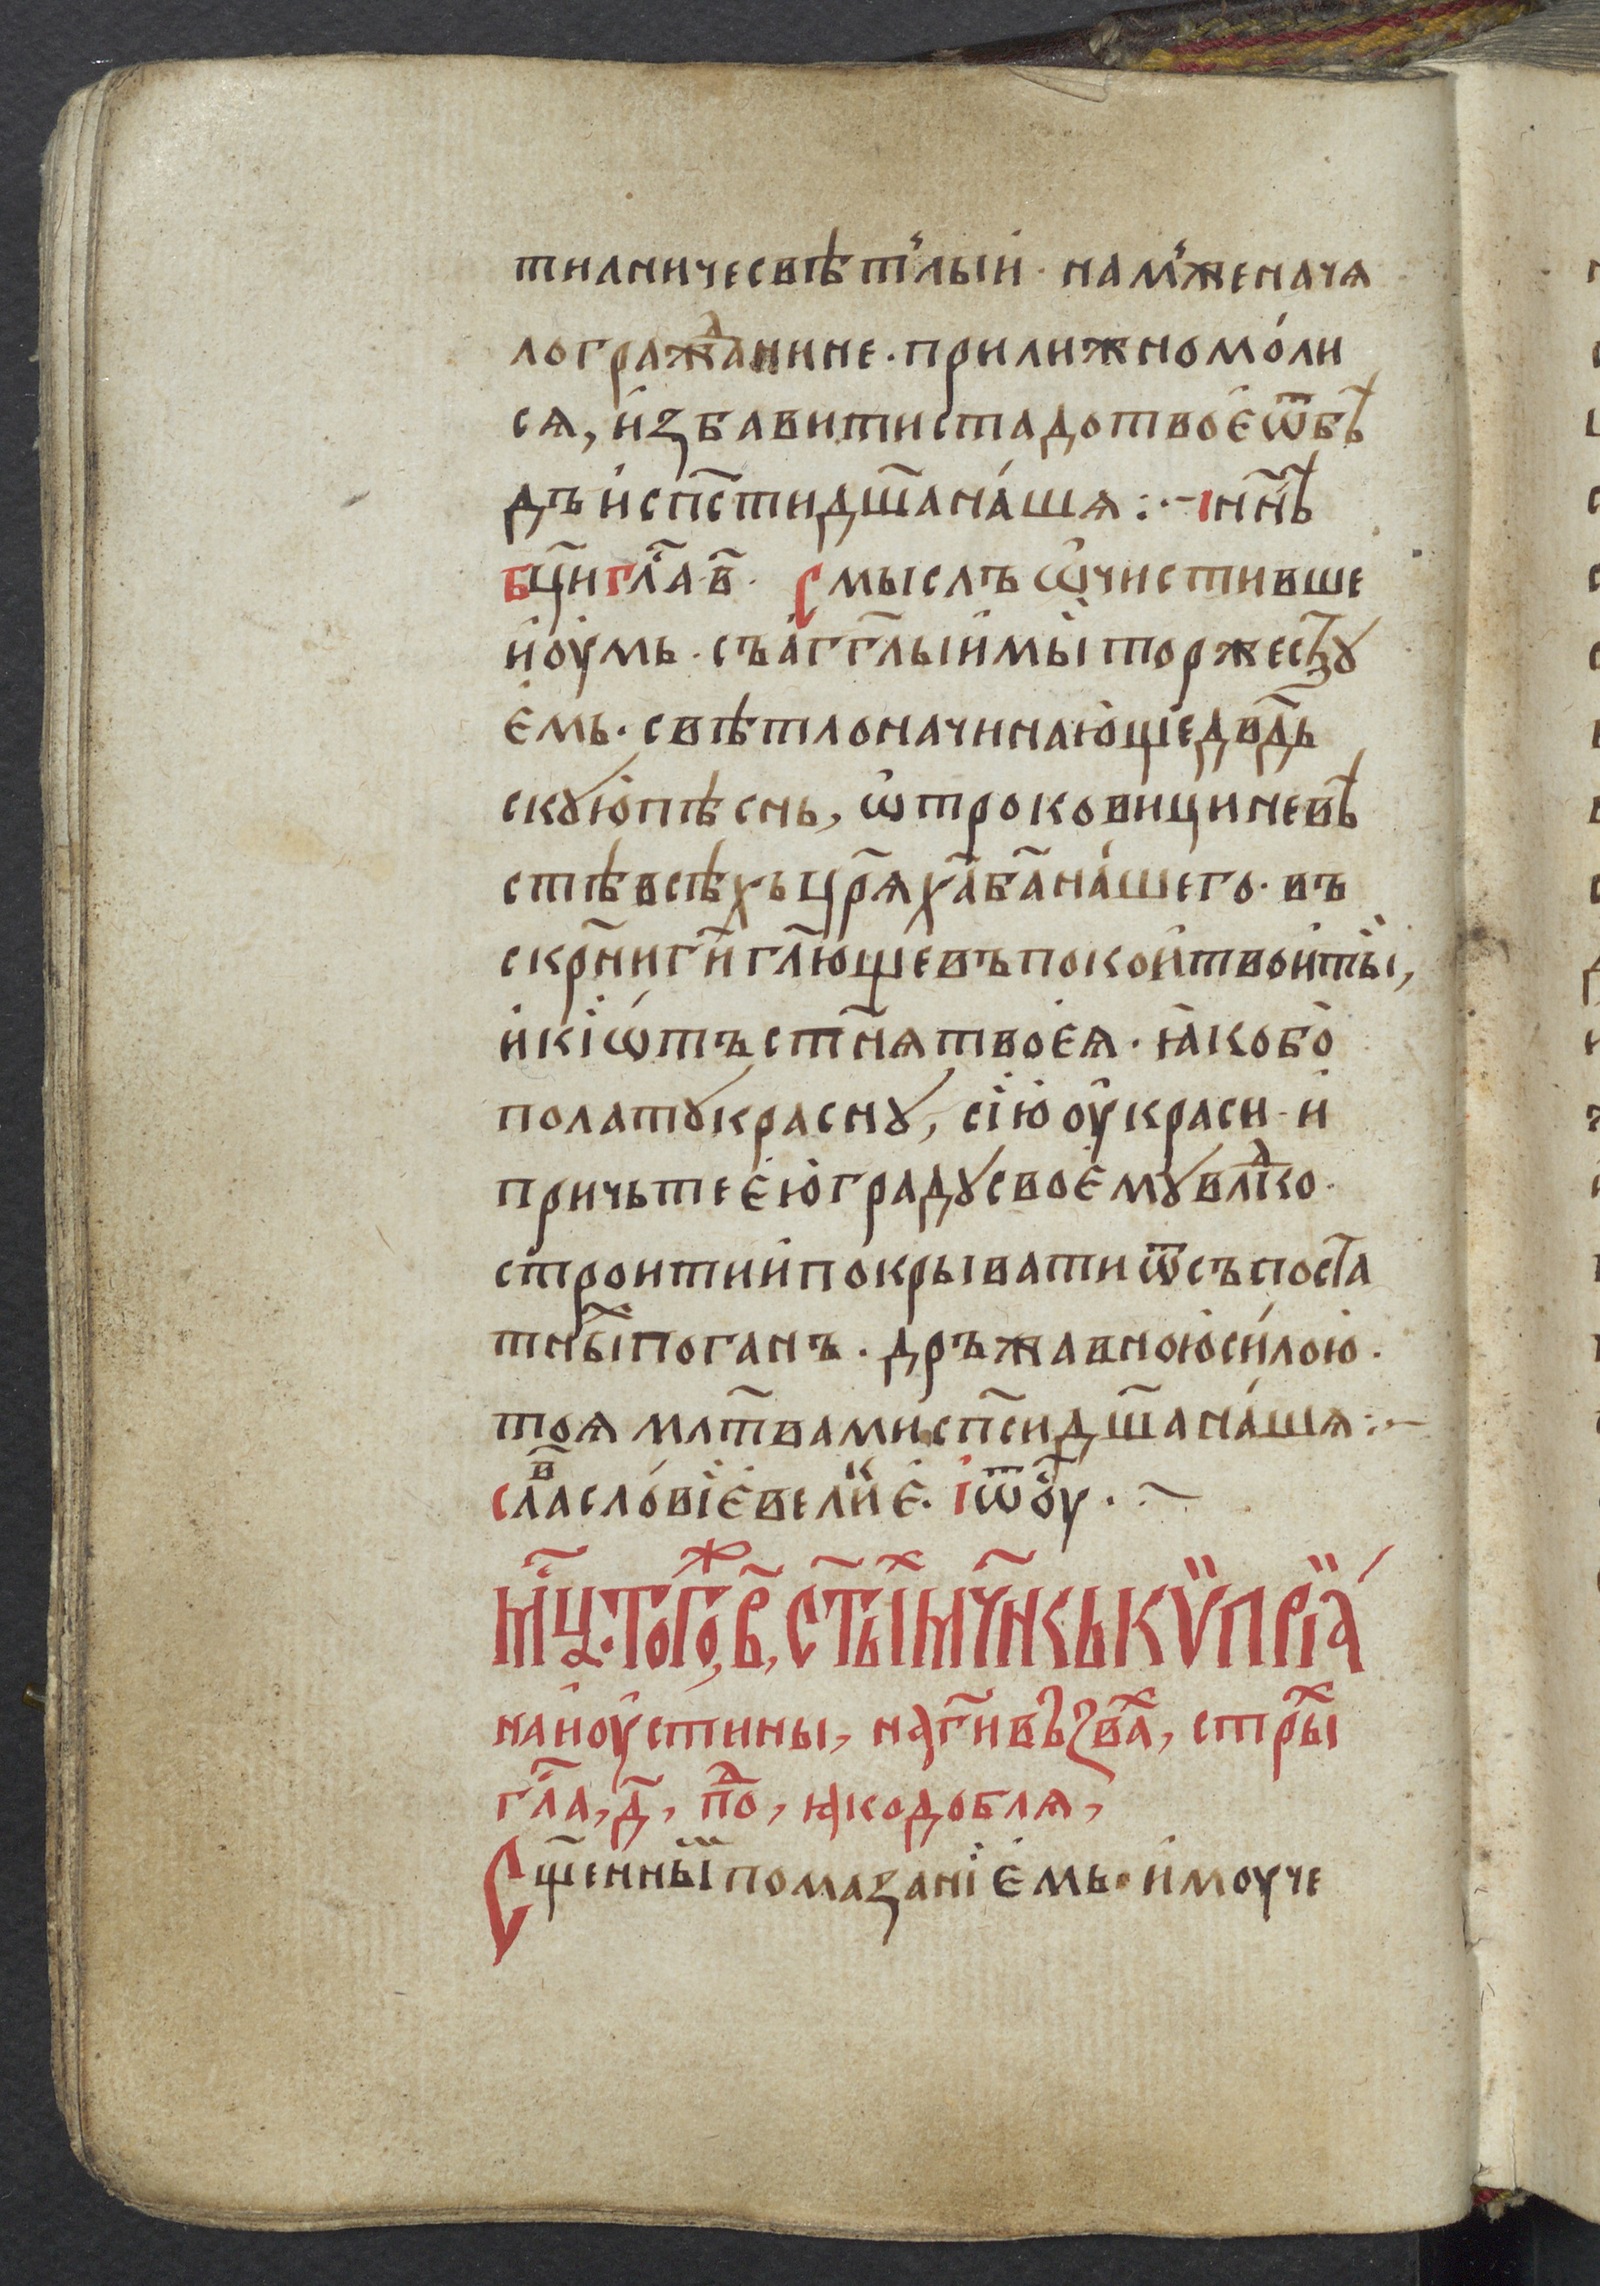 тилничесвѣт҆лыи · нам҆женачѧ
лограждⷣанине · прилижномо́ли
сѧ, и҆збавитистадотвоѐѿбѣ
дъ и҆сп҃стидш҃ана́шѧ :·~ ıнн҃ѣ
бц҃и гл҃а · в҃ · Смыслъ ѡ҆чистивше
и҆оу҆мь · съаг҆г҃лыи҆мы̀торжествꙋ
є҆мь · свѣтлоначинаю҆щедвд҃ь
скꙋю҆пѣснь, ѡ҆троковициневѣ
стѣвсѣхъцр҃ѧх҃аба҃на́шего · въ
скрн҃иги҃гл҃ющевъпокои҆твои҆ты̀,
и҆кіѡ́тъст҃нѧтвоеѧ̀ · ꙗ҆кобо
полатꙋкраснꙋ, сію̀оу҆краси · и҆
причьтеє҆ю҆градꙋсвоє҆мꙋвлⷣко ·
строитии҆покрыватиѿсъпоста
тныⷯпоганъ · дръжавною҆си́лою ·
тоѧмлт҃вамисп҃сидш҃ана́шѧ :·~
славⷡ҇асло́віє҆вели́кⷦ҇є҆ · і҆ѿоу · ~
Мц҃а · тогоⷤ, в҃, ст҃ыⷯмч҃нкъкѵпріа́
наи҆оу҆стины, наг҃ивъзва҃ⷯ, стр҃ыⷯ
гл҃а, д҃, поⷣ, ꙗкодоблѧ,
Сщ҃енныⷨпомазаніє҆мь · и҆моуче